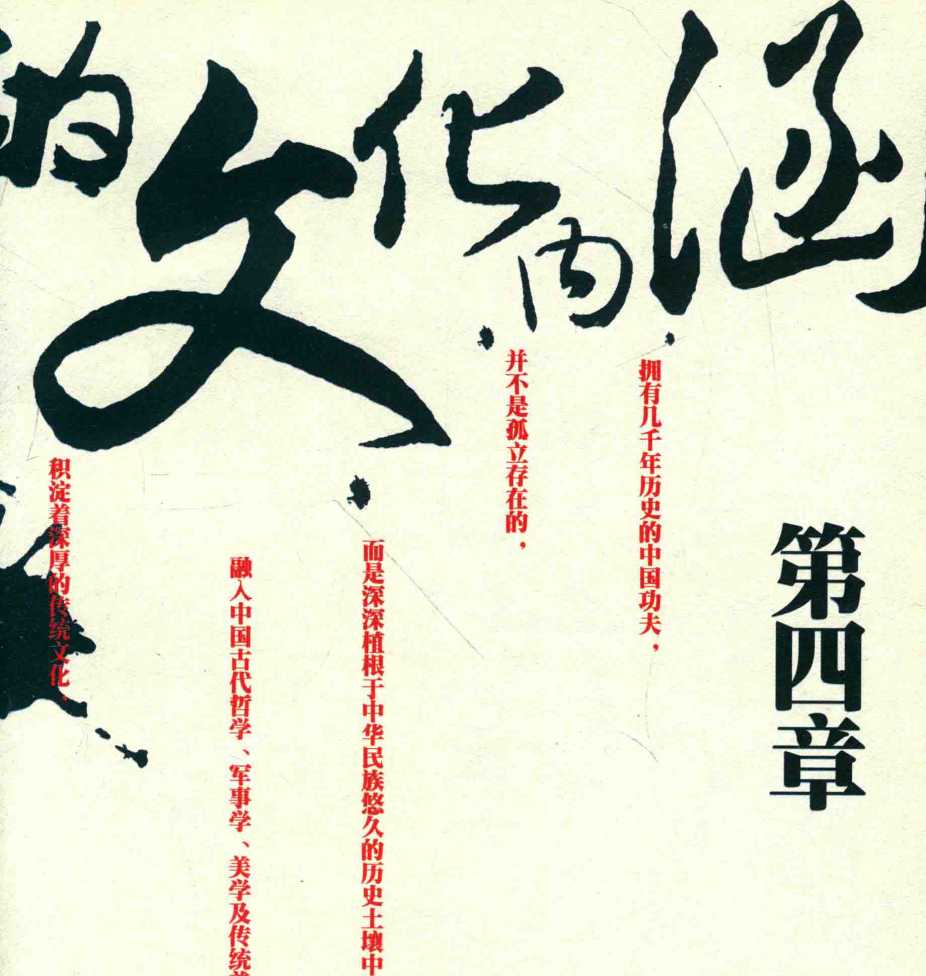 的文化内涵
第四章
拥有几千年历史的中国功夫，
并不是孤立存在的，
而是深深植根于中华民族悠久的历史土壤中
融入中国古代哲学、军事学、美学及传统
积淀着深厚的传统文化，